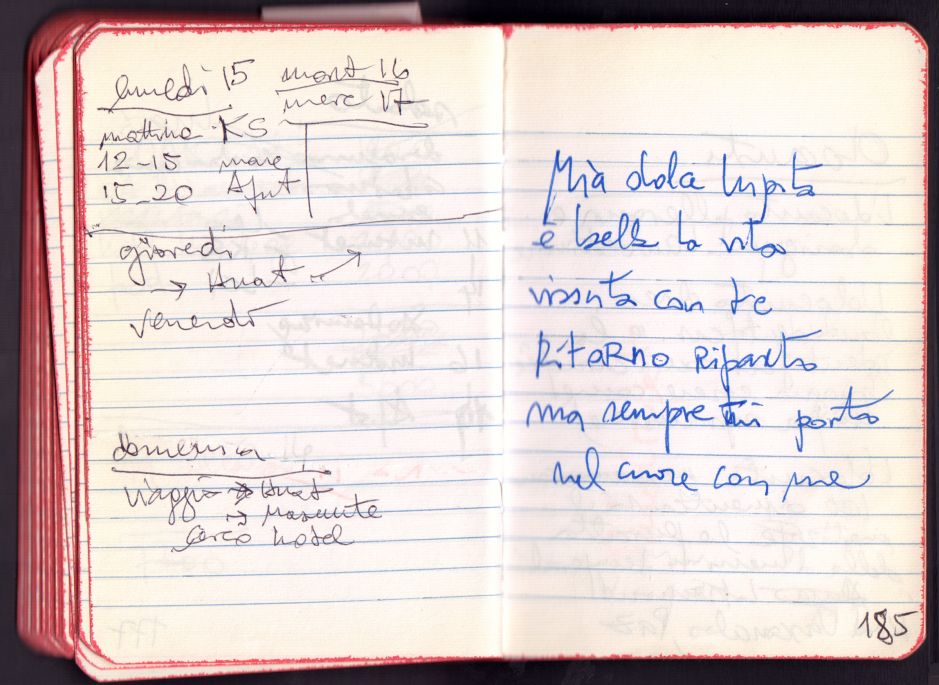 lunedì 15 mart 16
merc 17
mattina KS
12-15 mare
15-20 Ajut
giovedì
→ Huat
venerdì
domenica
viaggio → Huat
→ 
cerco hotel
Mia dolce lupita
è bella la vita
vissuta con te
RITARNO RIPARTO
ma sempre ti porto
nel cuore con me
185